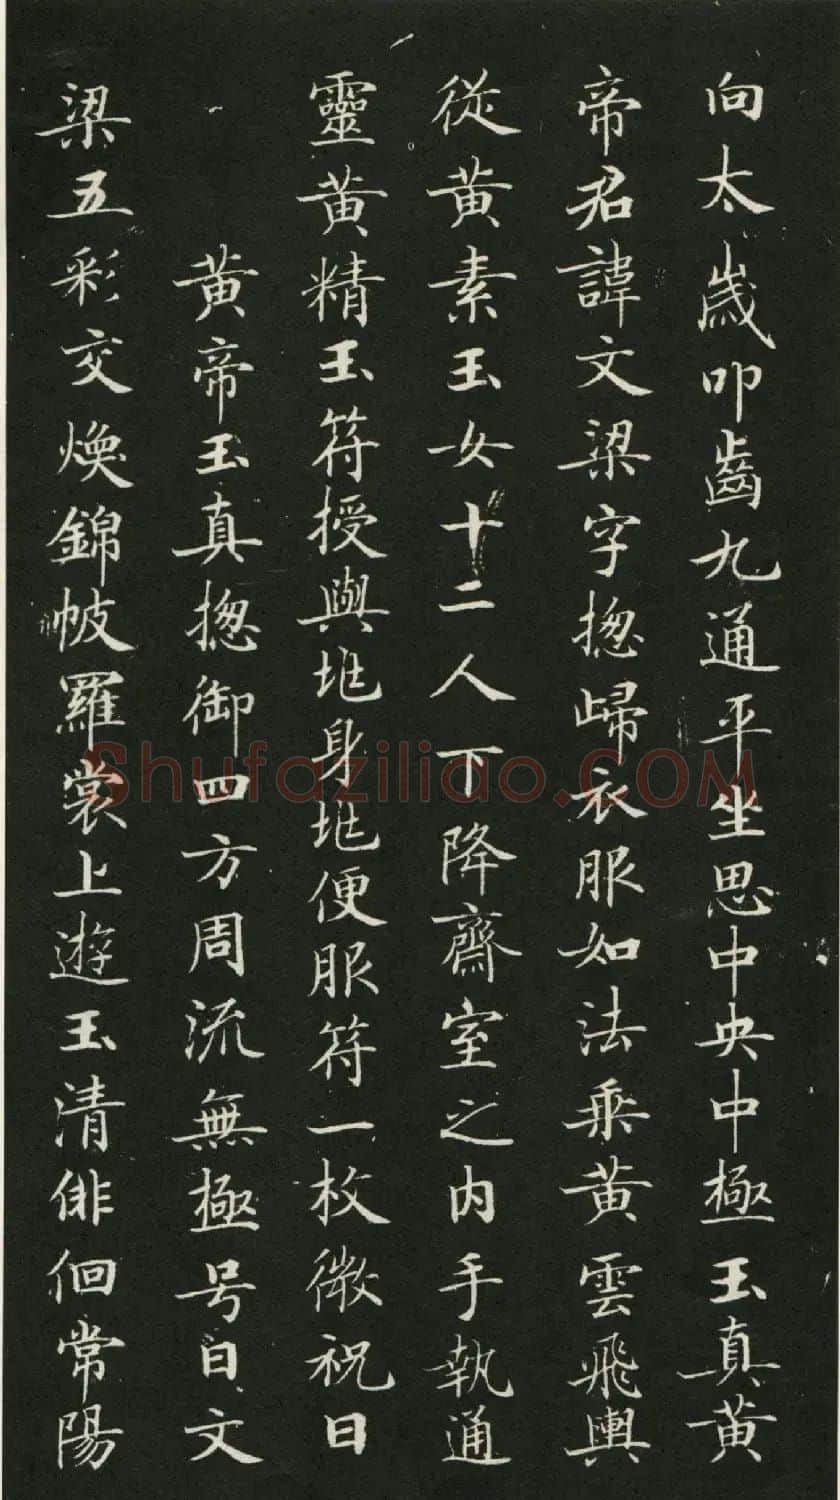 向太歲叩齒九通平坐思中央中極玉真黃
帝君諱文梁字揔歸衣服如法乘黃雲飛輿
從黃素玉女十二人下降齋室之內手執通
靈黃精玉符授與兆身兆便服符一枚微祝曰
黃帝玉真揔御四方周流無極号曰文
梁五彩交煥錦帔羅裳上遊玉清俳佪常陽
Shufaziliao.COM